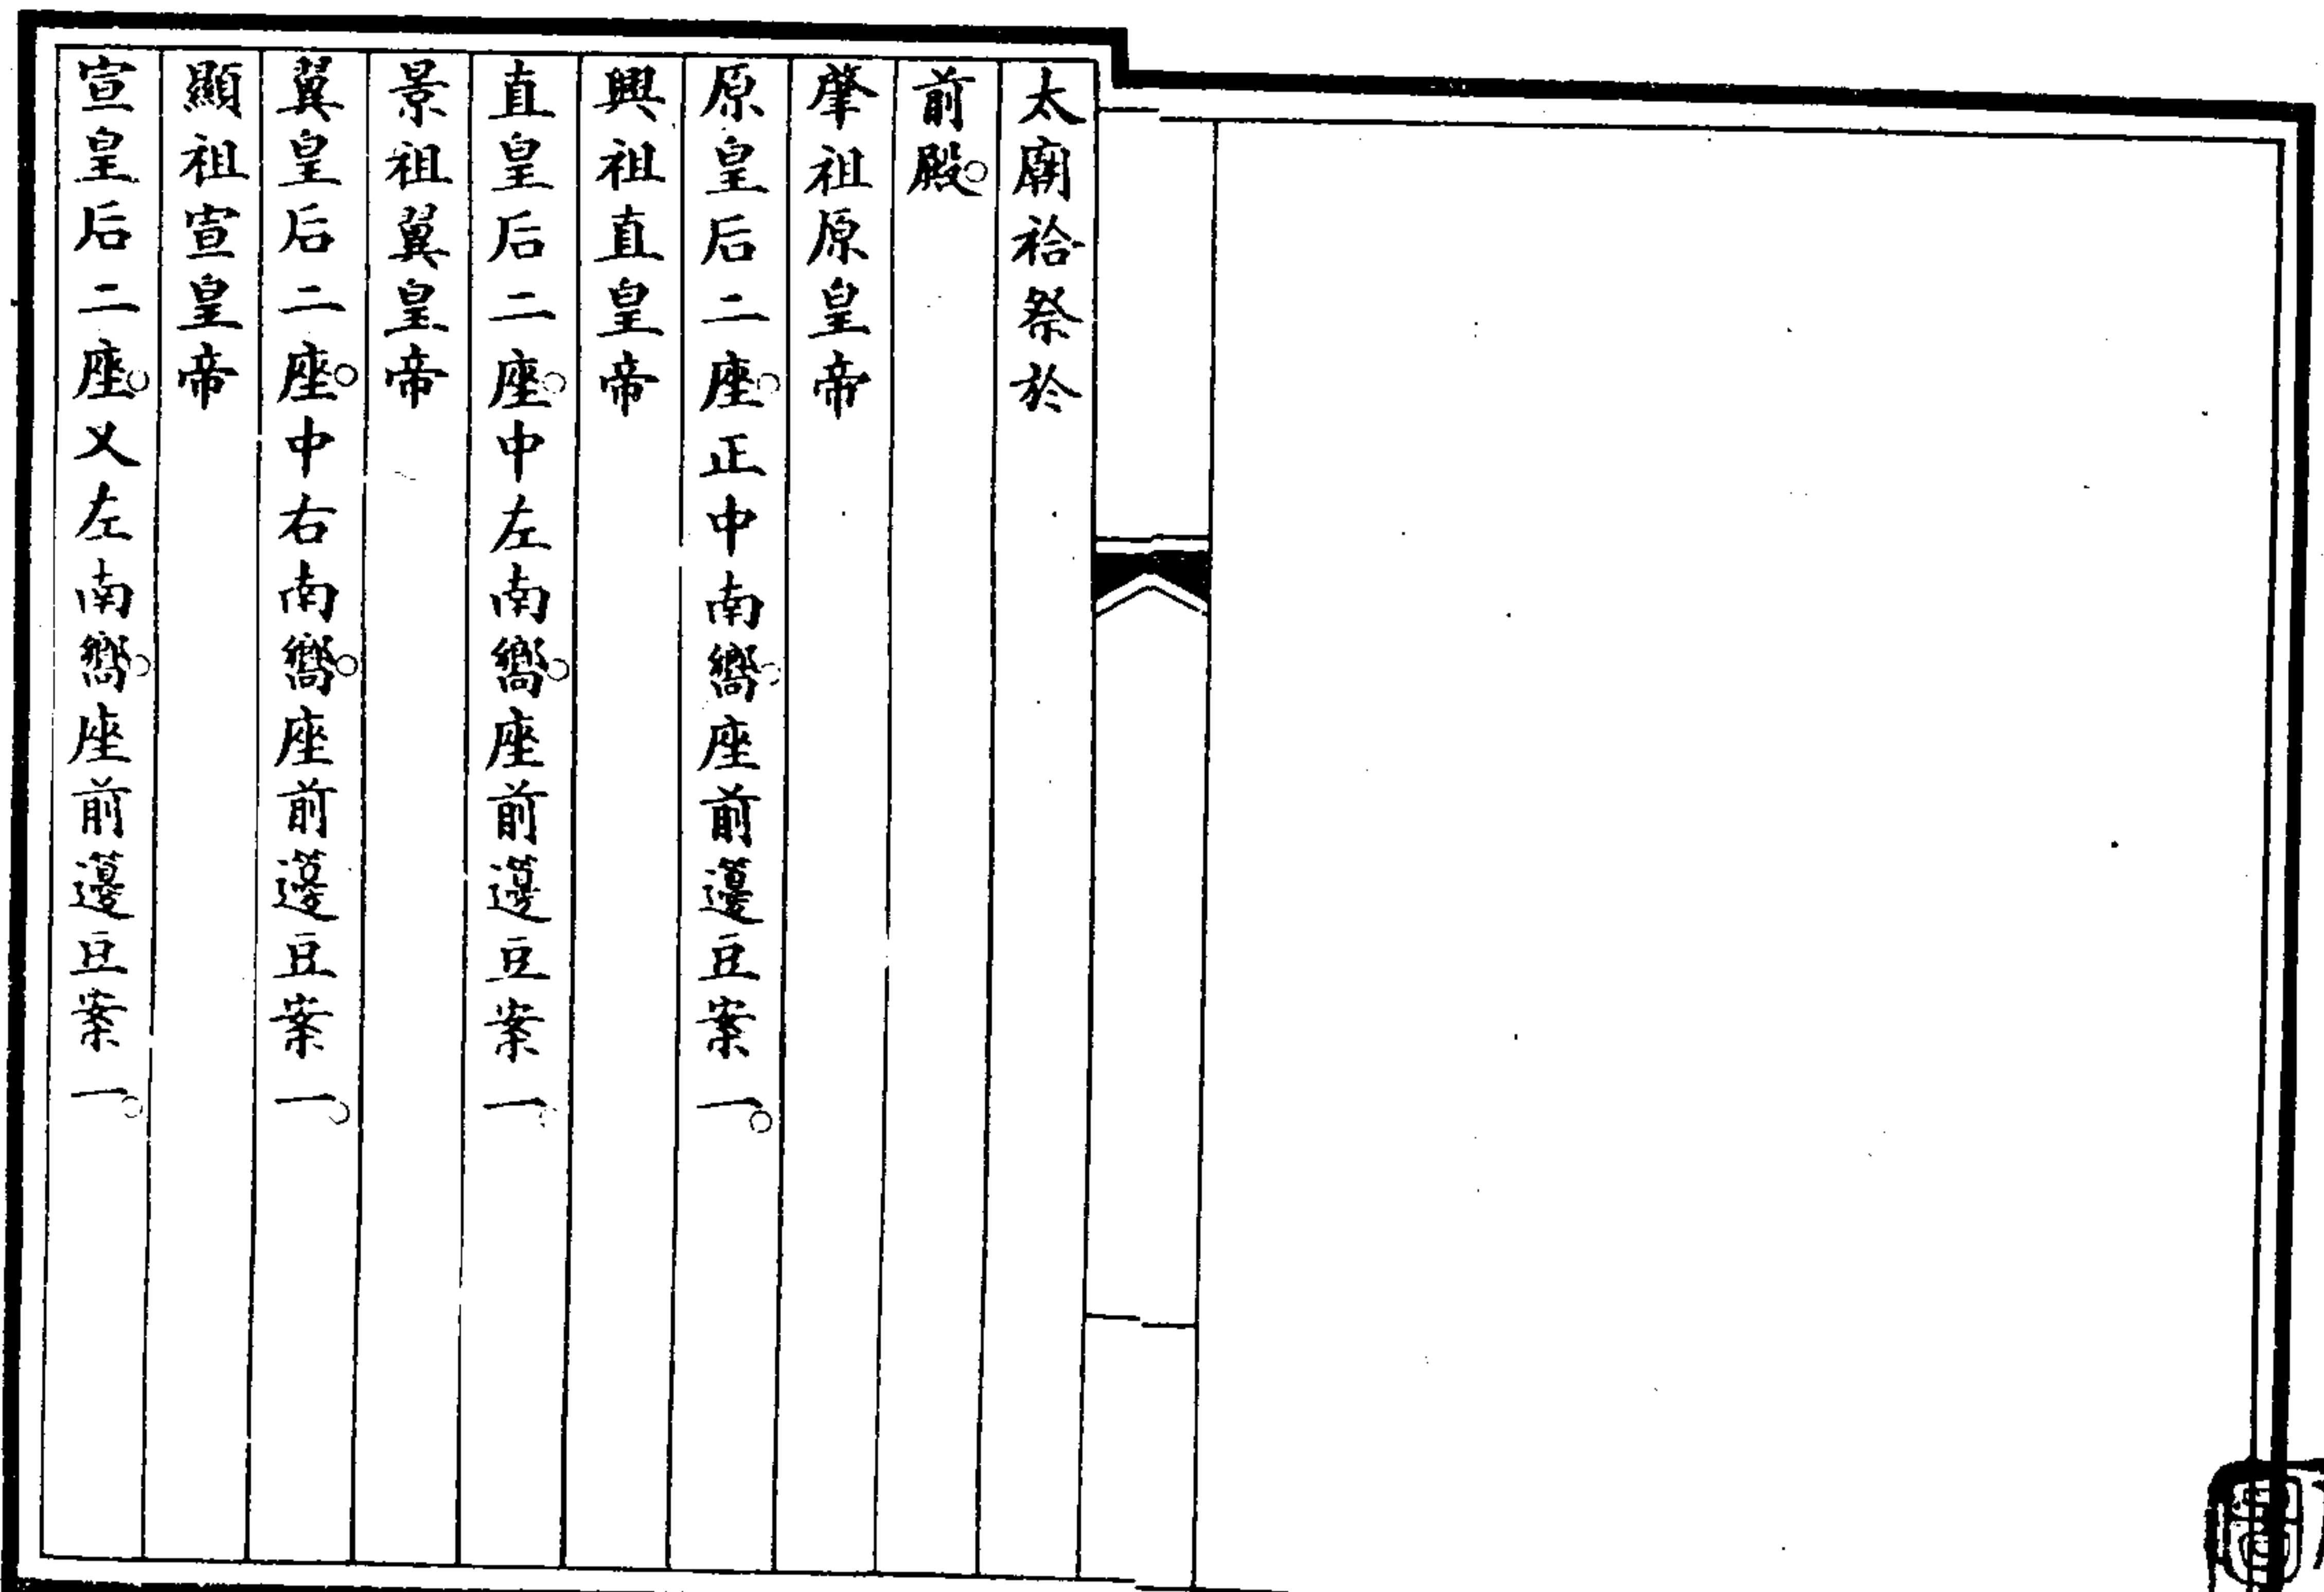 太廟祫祭於
前殿。
肇祖原皇帝
原皇后二座。正中南嚮。座前籩豆案一。
興祖直皇帝
直皇后二座。中左南嚮。座前籩豆案一。
景祖翼皇帝
翼皇后二座。中右南嚮。座前籩豆案一。
顯祖宣皇帝
宣皇后二座。又左南嚮。座前籩豆案一。